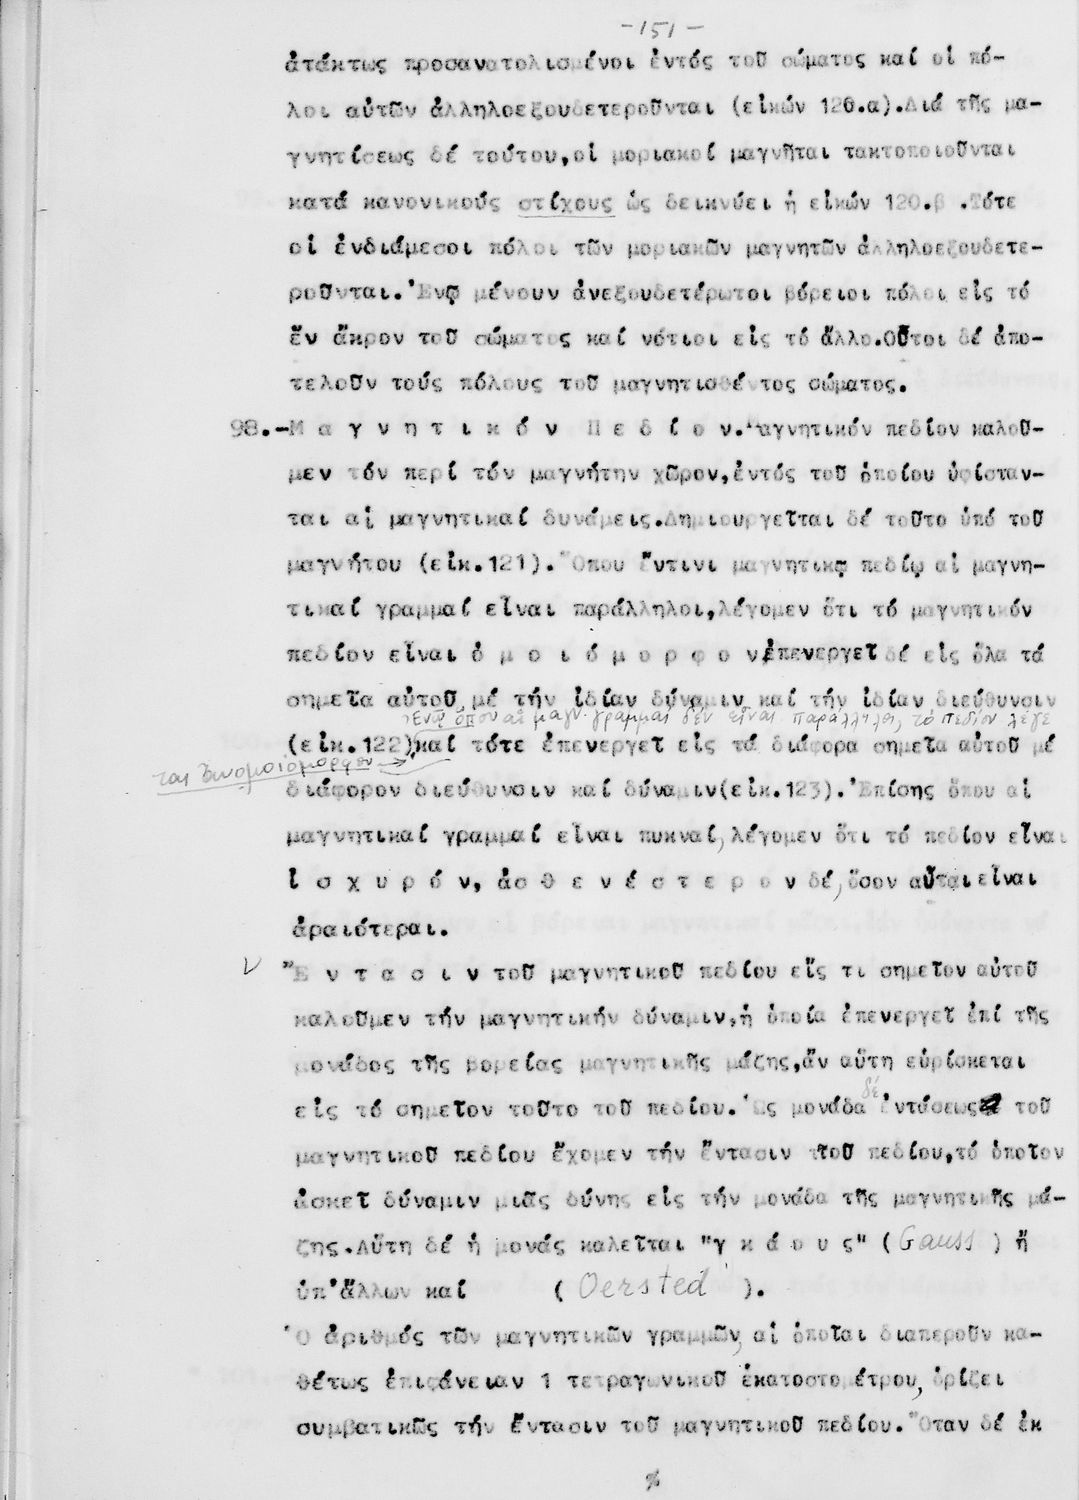 -151-
ἀτάκτως προσανατολισμένοι ἐντός τοῦ σώματος καί οἱ πό-
λοι αὐτῶν ἀλληλοεξουδετεροῦνται (εἰκών 120.α).Διά τῆς μα-
γνητίσεως δέ τούτου,οἱ μοριακοί μαγνῆται τακτοποιοῦνται
κατά κανονικούς στίχους ὡς δεικνύει ἡ εἰκών 120.β .Τότε
οἱ ἐνδιάμεσοι πόλοι τῶν μοριακῶν μαγνητῶν ἀλληλοεξουδετε-
ροῦνται.Ἐνῷ μένουν ἀνεξουδετέρωτοι βόρειοι πόλοι εἰς τό
ἕν ἄκρον τοῦ σώματος καί νότιοι εἰς τό ἄλλο.Οὗτοι δέ ἀπο-
τελοῦν τούς πόλους τοῦ μαγνητισθέντος σώματος.
98.-Μ α γ ν η τ ι κ ό ν Π ε δ ί ο ν.Μαγνητικόν πεδίον καλοῦ-
μεν τόν περί τόν μαγνήτην χῶρον,ἐντός τοῦ ὁποίου ὑφίσταν-
ται αἱ μαγνητικαί δυνάμεις.Δημιουργεῖται δέ τοῦτο ὑπό τοῦ
μαγνήτου (εἰκ.121).Ὅπου ἔντινι μαγνητικῷ πεδίῳ αἱ μαγνη-
τικαί γραμμαί εἶναι παράλληλοι,λέγομεν ὅτι τό μαγνητικόν
πεδίον εἶναι ὁ μ ο ι ό μ ο ρ φ ο ν,ἐπενεργεῖ δέ εἰς ὅλα τά
σημεῖα αὐτοῦ μέ τήν ἰδίαν δύναμιν καί τήν ἰδίαν διεύθυνσιν
Ἐνῷ ὅπου αἱ μαγν. γραμμαί δέν εἶναι παράλληλοι, τό πεδίον λέγε
(εἰκ.122),καί τότε ἐπενεργεῖ εἰς τά διάφορα σημεῖα αὐτοῦ μέ
ται ἀνομοιόμορφον
διάφορον διεύθυνσιν καί δύναμιν(εἰκ.123).Ἐπίσης ὅπου αἱ
μαγνητικαί γραμμαί εἶναι πυκναί,λέγομεν ὅτι τό πεδίον εἶναι
ἰ σ χ υ ρ ό ν, ἀσ θ ε ν έ σ τ ε ρ ο ν δέ,ὅσον αὗται εἶναι
ἀραιότεραι.
Ἔ ν τ α σ ι ν τοῦ μαγνητικοῦ πεδίου εἴς τι σημεῖον αὐτοῦ
καλοῦμεν τήν μαγνητικήν δύναμιν,ἡ ὁποία ἐπενεργεῖ ἐπί τῆς
μονάδος τῆς βορείας μαγνητικῆς μάζης,ἄν αὕτη εὑρίσκεται
εἰς τό σημεῖον τοῦτο τοῦ πεδίου.Ὡς μονάδα δέ ἐντάσεως τοῦ
μαγνητικοῦ πεδίου ἔχομεν τήν ἔντασιν τοῦ πεδίου,τό ὁποῖον
ἀσκεῖ δύναμιν μιᾶς δύνης εἰς τήν μονάδα τῆς μαγνητικῆς μά-
ζης.Αὕτη δέ ἡ μονάς καλεῖται "γ κ ά ο υ ς" (Gauss) ἤ
ὑπ'ἄλλων καί (Oersted).
Ὁ ἀριθμός τῶν μαγνητικῶν γραμμῶν, αἱ ὁποῖαι διαπεροῦν κα-
θέτως ἐπιφάνειαν 1 τετραγωνικοῦ ἑκατοστομέτρου, ὁρίζει
συμβατικῶς τήν ἔντασιν τοῦ μαγνητικοῦ πεδίου.Ὅταν δέ ἐκ
%